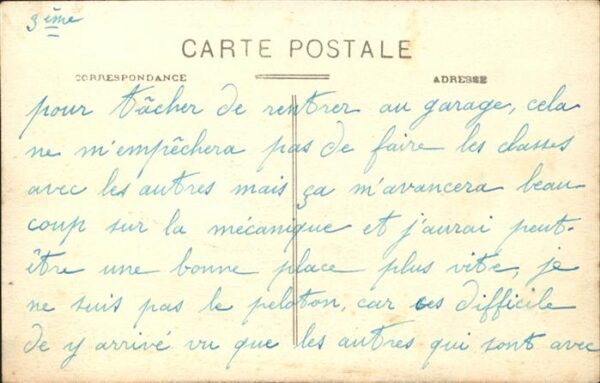 3ème
CARTE POSTALE
CORRESPONDANCE ADRESSE
pour tâcher de rentrer au garage, cela
ne m'empêchera pas de faire les classes
avec les autres mais ça m'avancera beau-
coup sur la mécanique et j'aurai peut-
être une bonne place plus vite, je
ne suis pas le peloton, car ces difficile
de y arrivé vu que les autres qui sont avec